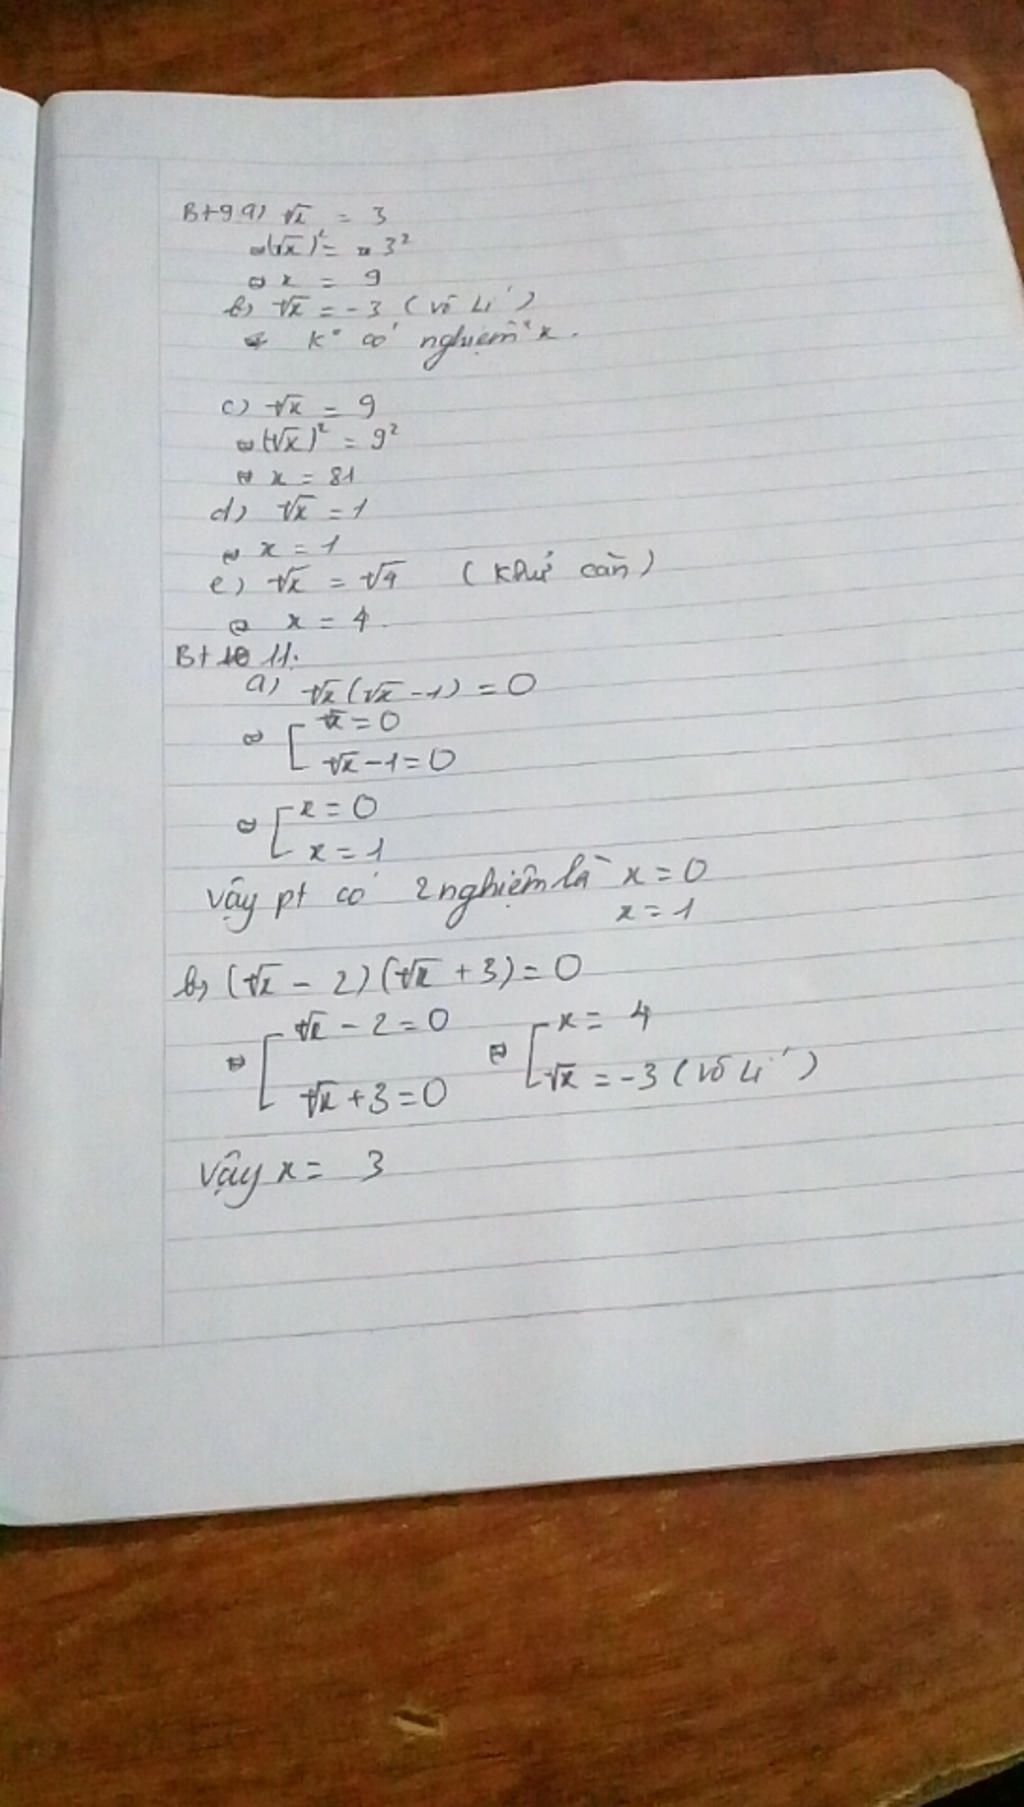 Bt 9 a) √x = 3
⇔ (√x)² = 3²
⇔ x = 9
b) √x = -3 (vô lí)
k° có nghiệm x.
c) √x = 9
⇔ (√x)² = 9²
⇔ x = 81
d) √x = 1
⇔ x = 1
e) √x = √4 (khử căn)
⇔ x = 4.
Bt 11.
a) √x(√x - 1) = 0
⇔ [ √x = 0
√x - 1 = 0
⇔ [ x = 0
x = 1
Vậy pt có 2 nghiệm là x = 0
x = 1
b) (√x - 2)(√x + 3) = 0
⇔ [ √x - 2 = 0 ⇔ [ x = 4
√x + 3 = 0 √x = -3 (vô lí)
Vậy x = 3